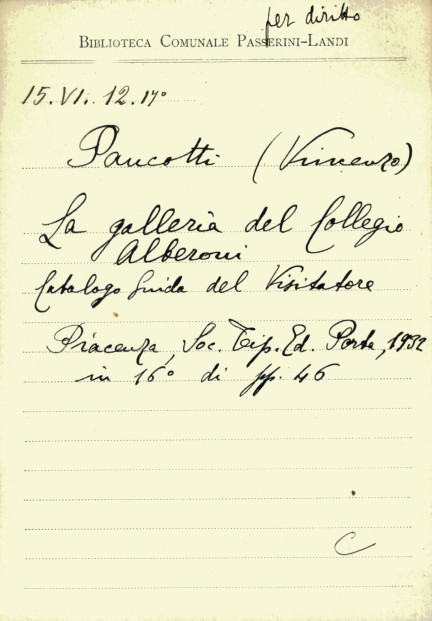 per diritto
BIBLIOTECA COMUNALE PASSERINI-LANDI
15.VI. 12.17°
Pancotti (Vincenzo)
La galleria del Collegio
Alberoni
Catalogo Guida del Visitatore
Piacenza, Soc. Tip. Ed. Porta, 1932
in 16° di pp. 46
C